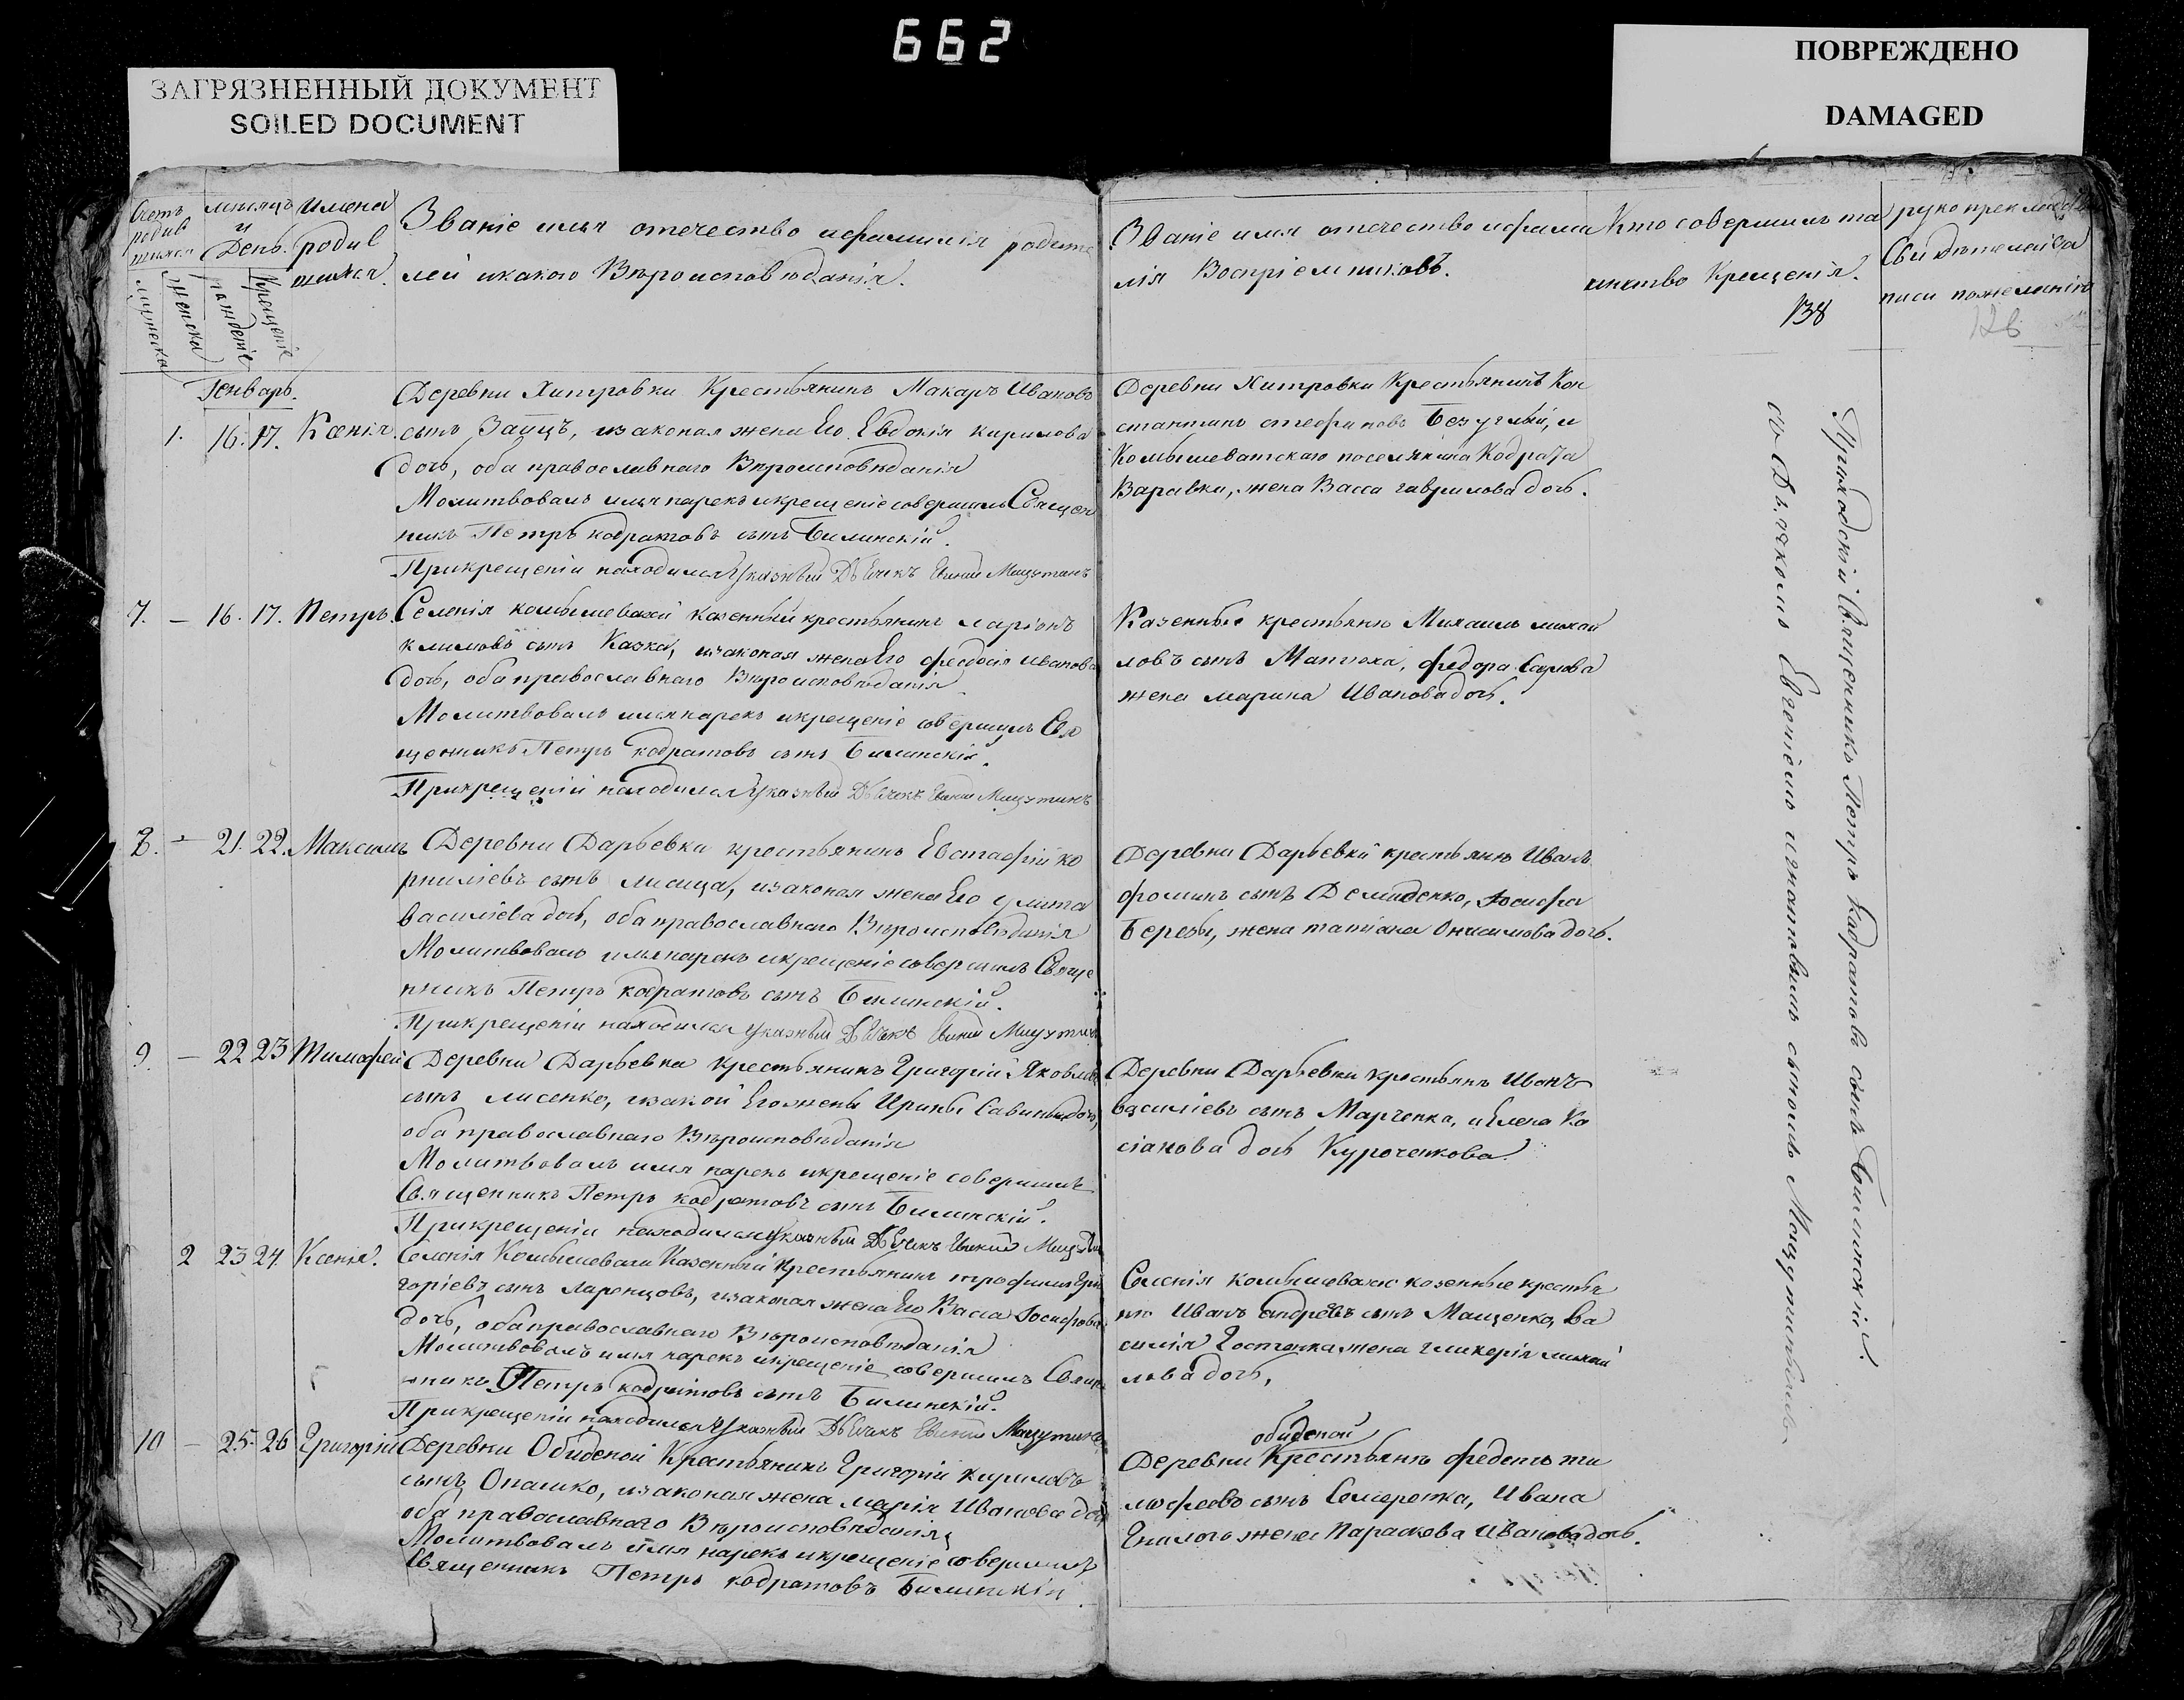 662
ЗАГРЯЗНЕННЫЙ ДОКУМЕНТ
SOILED DOCUMENT
ПОВРЕЖДЕНО
DAMAGED
Счетъ родив шихся
мужеска
женска
мѣсяцъ и День.
рожденіе
Крещеніе
Имена
родив
шихся.
Званіе имя отечество ифамилія родите
лей икакого Вѣроисповѣданія.
Званіе имя отечество ифами
лія Воспріемниковъ.
Кто совершилъ та
инство Крещенія.
138
рукоприклад
Свидѣтелей за
писи пожеланію
126
Генварь.
1. 16. 17. Ксенія.
Деревни Хитровки Крестьянинъ Макаръ Ивановъ
сынъ Заицъ, изаконая жена Его Евдокія кирилова
дочь, оба православнаго Вѣроисповѣданія
Молитвовалъ имя нарекъ икрещеніе совершилъ Священ
никъ Петръ кодратовъ сынъ Билинскій.
Прикрещеніи находился Указный Дьячекъ
Деревни Хитровки Крестьянинъ Кон
стантинъ стефановъ Безуглый, и
Комышеватскаго поселянина Кодрата
Варавки, жена Васса гаврилова дочь.
7. — 16. 17. Петръ.
Селенія комышевахи казенный крестьянинъ ларіонъ
климовъ сынъ Казка, изаконая жена Его феодосія иванова
дочь, оба православнаго Вѣроисповѣданія
Молитвовалъ имя нарекъ икрещеніе совершилъ Свя
щенникъ Петръ кодратовъ сынъ Билинскій.
Прикрещеніи находился Указный Дьячекъ
Казенные крестьяне Михаилъ михай
ловъ сынъ Матюха, федора
жена марина Иванова дочь.
8. — 21. 22. Максимъ
Деревни Дарьевки крестьянинъ Евстафій ко
рниліевъ сынъ лисица, изаконая жена Его улита
василіева дочь, оба православнаго Вѣроисповѣданія
Молитвовалъ имя нарекъ икрещеніе совершилъ Свяще
нникъ Петръ кодратовъ сынъ Билинскій.
Прикрещеніи находился указный Дьячекъ
Деревни Дарьевки крестьяне Иванъ
фоминъ сынъ Демиденко, Іосифа
Березы, жена татіана Онисимова дочь.
9. — 22 23 Тимофей
Деревни Дарьевки Крестьянинъ Григорій Яковлевъ
сынъ лисенко, изакон Его жены Ирины Савиныдочь,
оба православнаго Вѣроисповѣданія
Молитвовалъ имя нарекъ икрещеніе совершилъ
Священникъ Петръ кодратовъ сынъ Билинскій.
Прикрещеніи находился указный Дьячекъ
Деревни Дарьевки крестьяне Иванъ
василіевъ сынъ Марченко, иЕлена Ка
сіанова дочь Курочкенкова
2 23 24. Ксенія.
Селенія Комышевахи Казенный Крестьянинъ трофимъ Гри
горіевъ сынъ Ларенцовъ, изаконая жена Его Васса Іосифова
дочь, оба православнаго Вѣроисповѣданія
Молитвовалъ имя нарекъ икрещеніе совершилъ Священ
никъ Петръ кодратовъ сынъ Билинскій.
Прикрещеніи находился Указный Дьячекъ
Селенія комышевахи козенные крестья
не Иванъ андреевъ сынъ Мащенко, Ва
силія Костенка жена гликерія михай
лова дочь,
10 — 25. 26 Григорій
Деревни Обидной Крестьянинъ Григорій кириловъ
сынъ Опашко, изаконая жена марія Иванова дочь
оба православнаго Вѣроисповѣданія
Молитвовалъ имя нарекъ икрещеніе совершилъ
Священникъ Петръ кодратовъ Билинскій.
обидной
Деревни Крестьяне федотъ ти
мофеевъ сынъ Семеренка, Ивана
Гнилого жена Параскева Иванова дочь.
Приходскій Священникъ Петръ Кодратовъ сынъ Билинскій.
съ Дьячкомъ Евгеніемъ игнатовымъ сыномъ